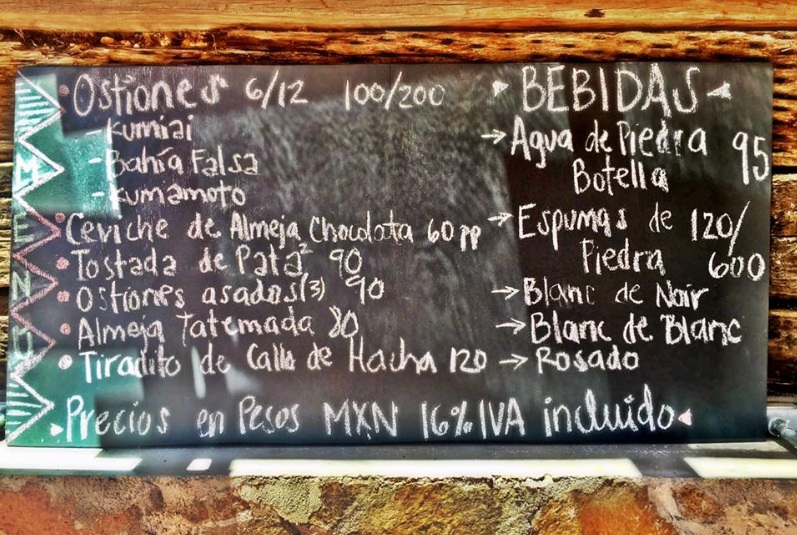 MENU
• Ostiones 6/12 100/200
- Kumiai
- Bahía Falsa
- Kumamoto
• Ceviche de Almeja Chocolata 60 pp
• Tostada de Pata² 90
• Ostiones asados(3) 90
• Almeja Tatemada 80
• Tiradito de Callo de Hacha 120
Precios en Pesos MXN 16% IVA incluido
BEBIDAS
→ Agua de Piedra 95
Botella
→ Espumas de 120/
Piedra 600
→ Blanc de Noir
→ Blanc de Blanc
→ Rosado